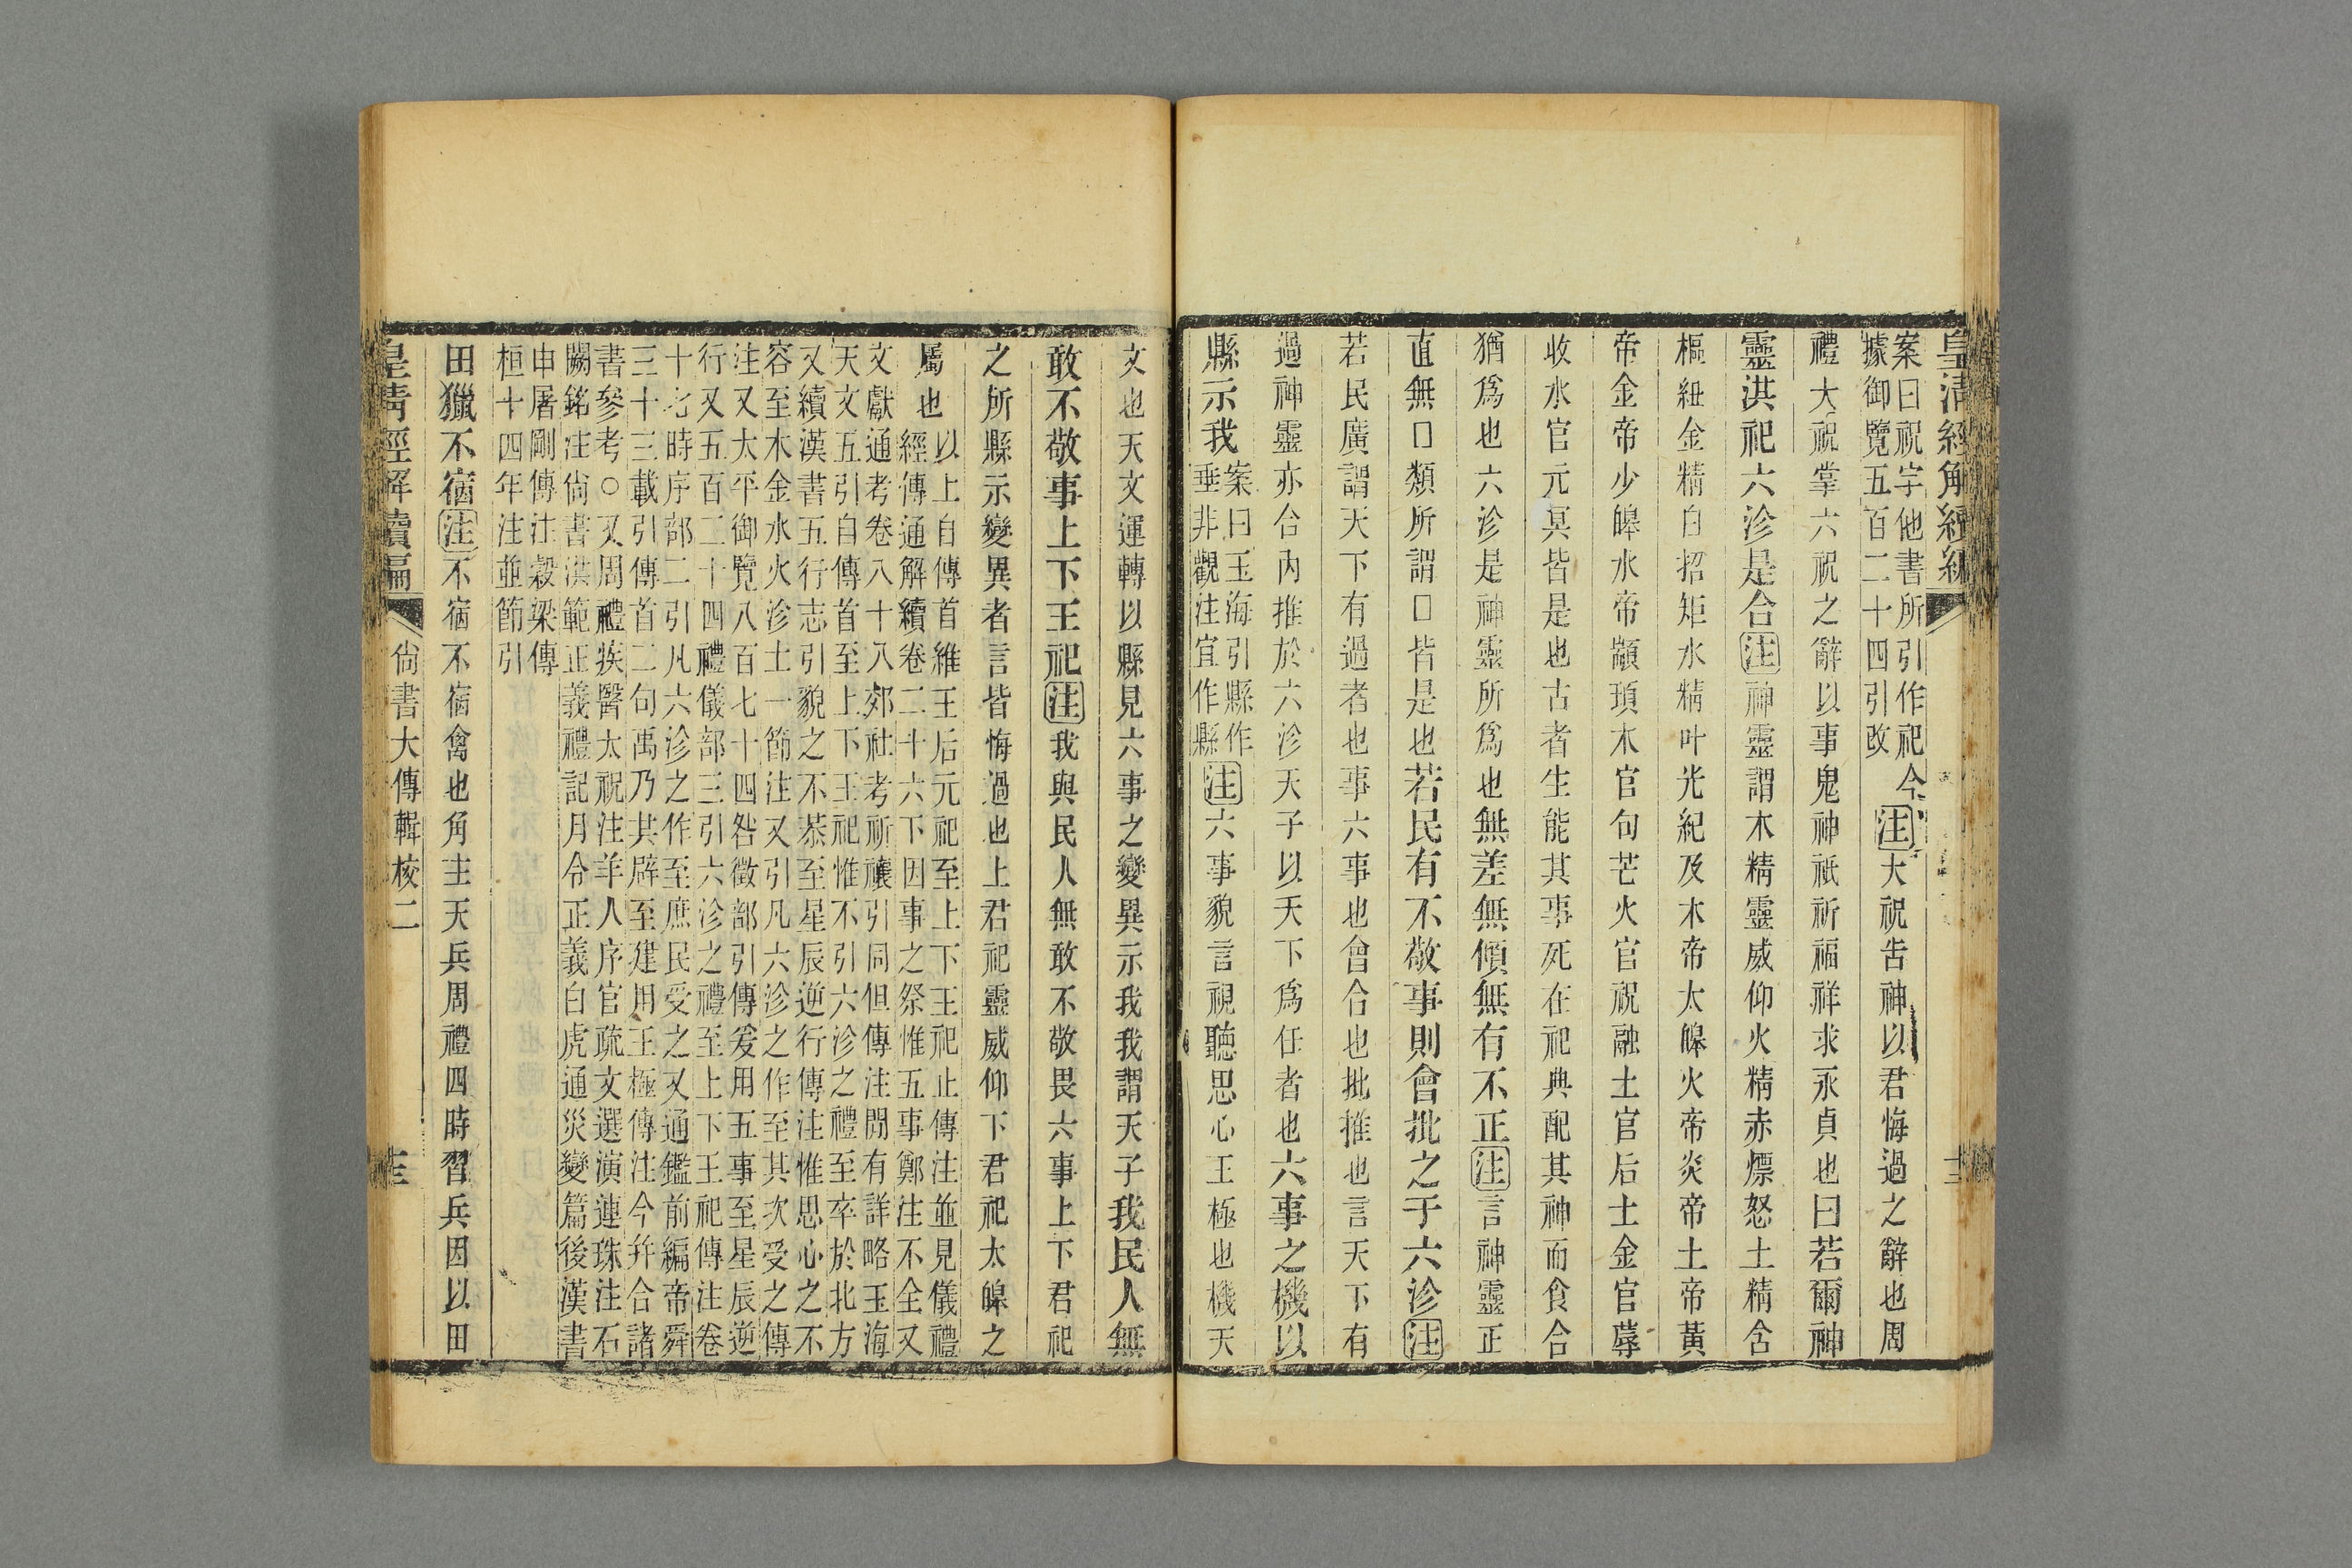 皇清經解續編
案曰祝字他書所引作祀今
據御覽五百二十四引改
注大祝告神以君悔過之辭也周
禮大祝掌六祝之辭以事鬼神祇祈福祥求永貞也曰若爾神
靈洪祀六沴是合注神靈謂木精靈威仰火精赤熛怒土精含
樞紐金精白招矩水精叶光紀及木帝太皞火帝炎帝土帝黃
帝金帝少皞水帝顓頊木官句芒火官祝融土官后土金官蓐
收水官元冥皆是也古者生能其事死在祀典配其神而食合
猶爲也六沴是神靈所爲也無差無傾無有不正注言神靈正
直無口類所謂口皆是也若民有不敬事則會批之于六沴注
若民廣謂天下有過者也事六事也會合也批推也言天下有
過神靈亦合內推於六沴天子以天下爲任者也六事之機以
縣示我
案曰玉海引縣作
垂非觀注宜作縣
注六事貌言視聽思心王極也機天
文也天文運轉以縣見六事之變異示我我謂天子我民人無
敢不敬事上下王祀注我與民人無敢不敬畏六事上下君祀
之所縣示變異者言皆悔過也上君祀靈威仰下君祀太皞之
屬也
以上自傳首維王后元祀至上下王祀止傳注並見儀禮
經傳通解續卷二十六下因事之祭惟五事鄭注不全又
文獻通考卷八十八郊社考祈禳引同但傳注閒有詳略玉海
天文五引自傳首至上下王祀惟不引六沴之禮至卒於北方
又續漢書五行志引貌之不恭至星辰逆行傳注惟思心之不
容至木金水火沴土一節注又引凡六沴之作至其次受之傳
注又太平御覽八百七十四咎徵部引傳爰用五事至星辰逆
行又五百二十四禮儀部三引六沴之禮至上下王祀傳注卷
十七時序部二引凡六沴之作至庶民受之又通鑑前編帝舜
三十三載引傳首二句禹乃其辟至建用王極傳注今幷合諸
書參考○又周禮疾醫太祝注羊人序官疏文選演連珠注石
闕銘注尙書洪範正義禮記月令正義白虎通災變篇後漢書
申屠剛傳注穀梁傳
桓十四年注並節引
田獵不宿注不宿不宿禽也角主天兵周禮四時習兵因以田
皇清經解續編
尙書大傳輯校二